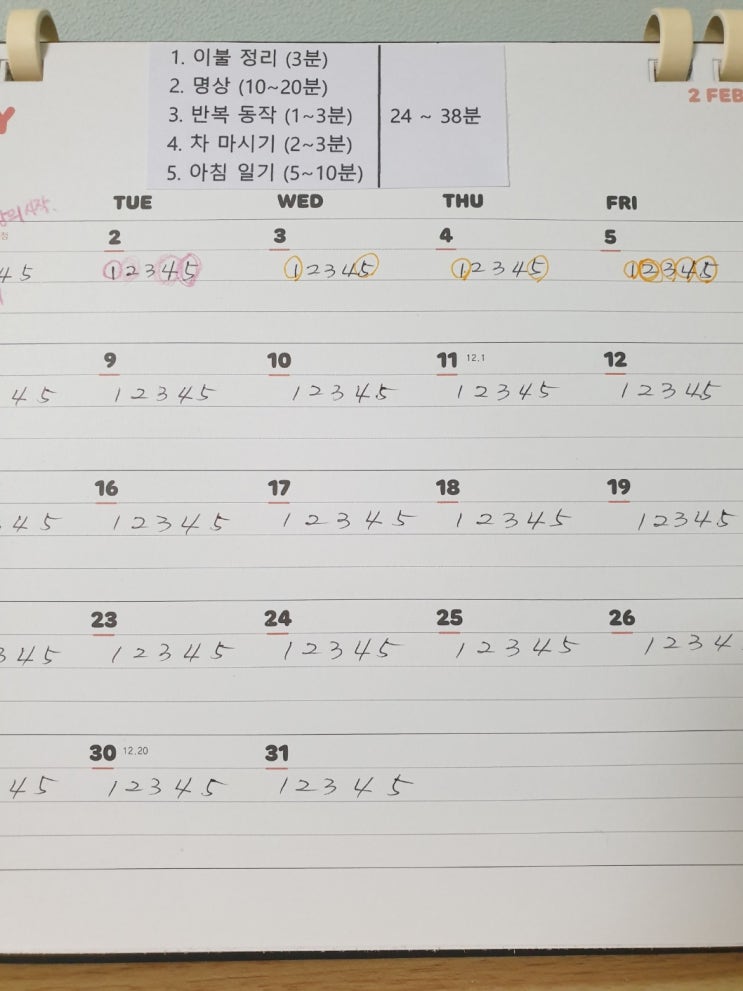 1. 이불 정리 (3분)
2. 명상 (10~20분)
3. 반복 동작 (1~3분)
4. 차 마시기 (2~3분)
5. 아침 일기 (5~10분)
24 ~ 38분
Y
2 FEB
TUE WED THU FRI
시작.
정
2 3 4 5
4 5 1 2 3 4 5 1 2 3 4 5 1 2 3 4 5 1 2 3 4 5
9 10 11 12.1 12
4 5 1 2 3 4 5 1 2 3 4 5 1 2 3 4 5 1 2 3 4 5
16 17 18 19
4 5 1 2 3 4 5 1 2 3 4 5 1 2 3 4 5 1 2 3 4 5
23 24 25 26
3 4 5 1 2 3 4 5 1 2 3 4 5 1 2 3 4 5 1 2 3 4
30 12.20 31
4 5 1 2 3 4 5 1 2 3 4 5